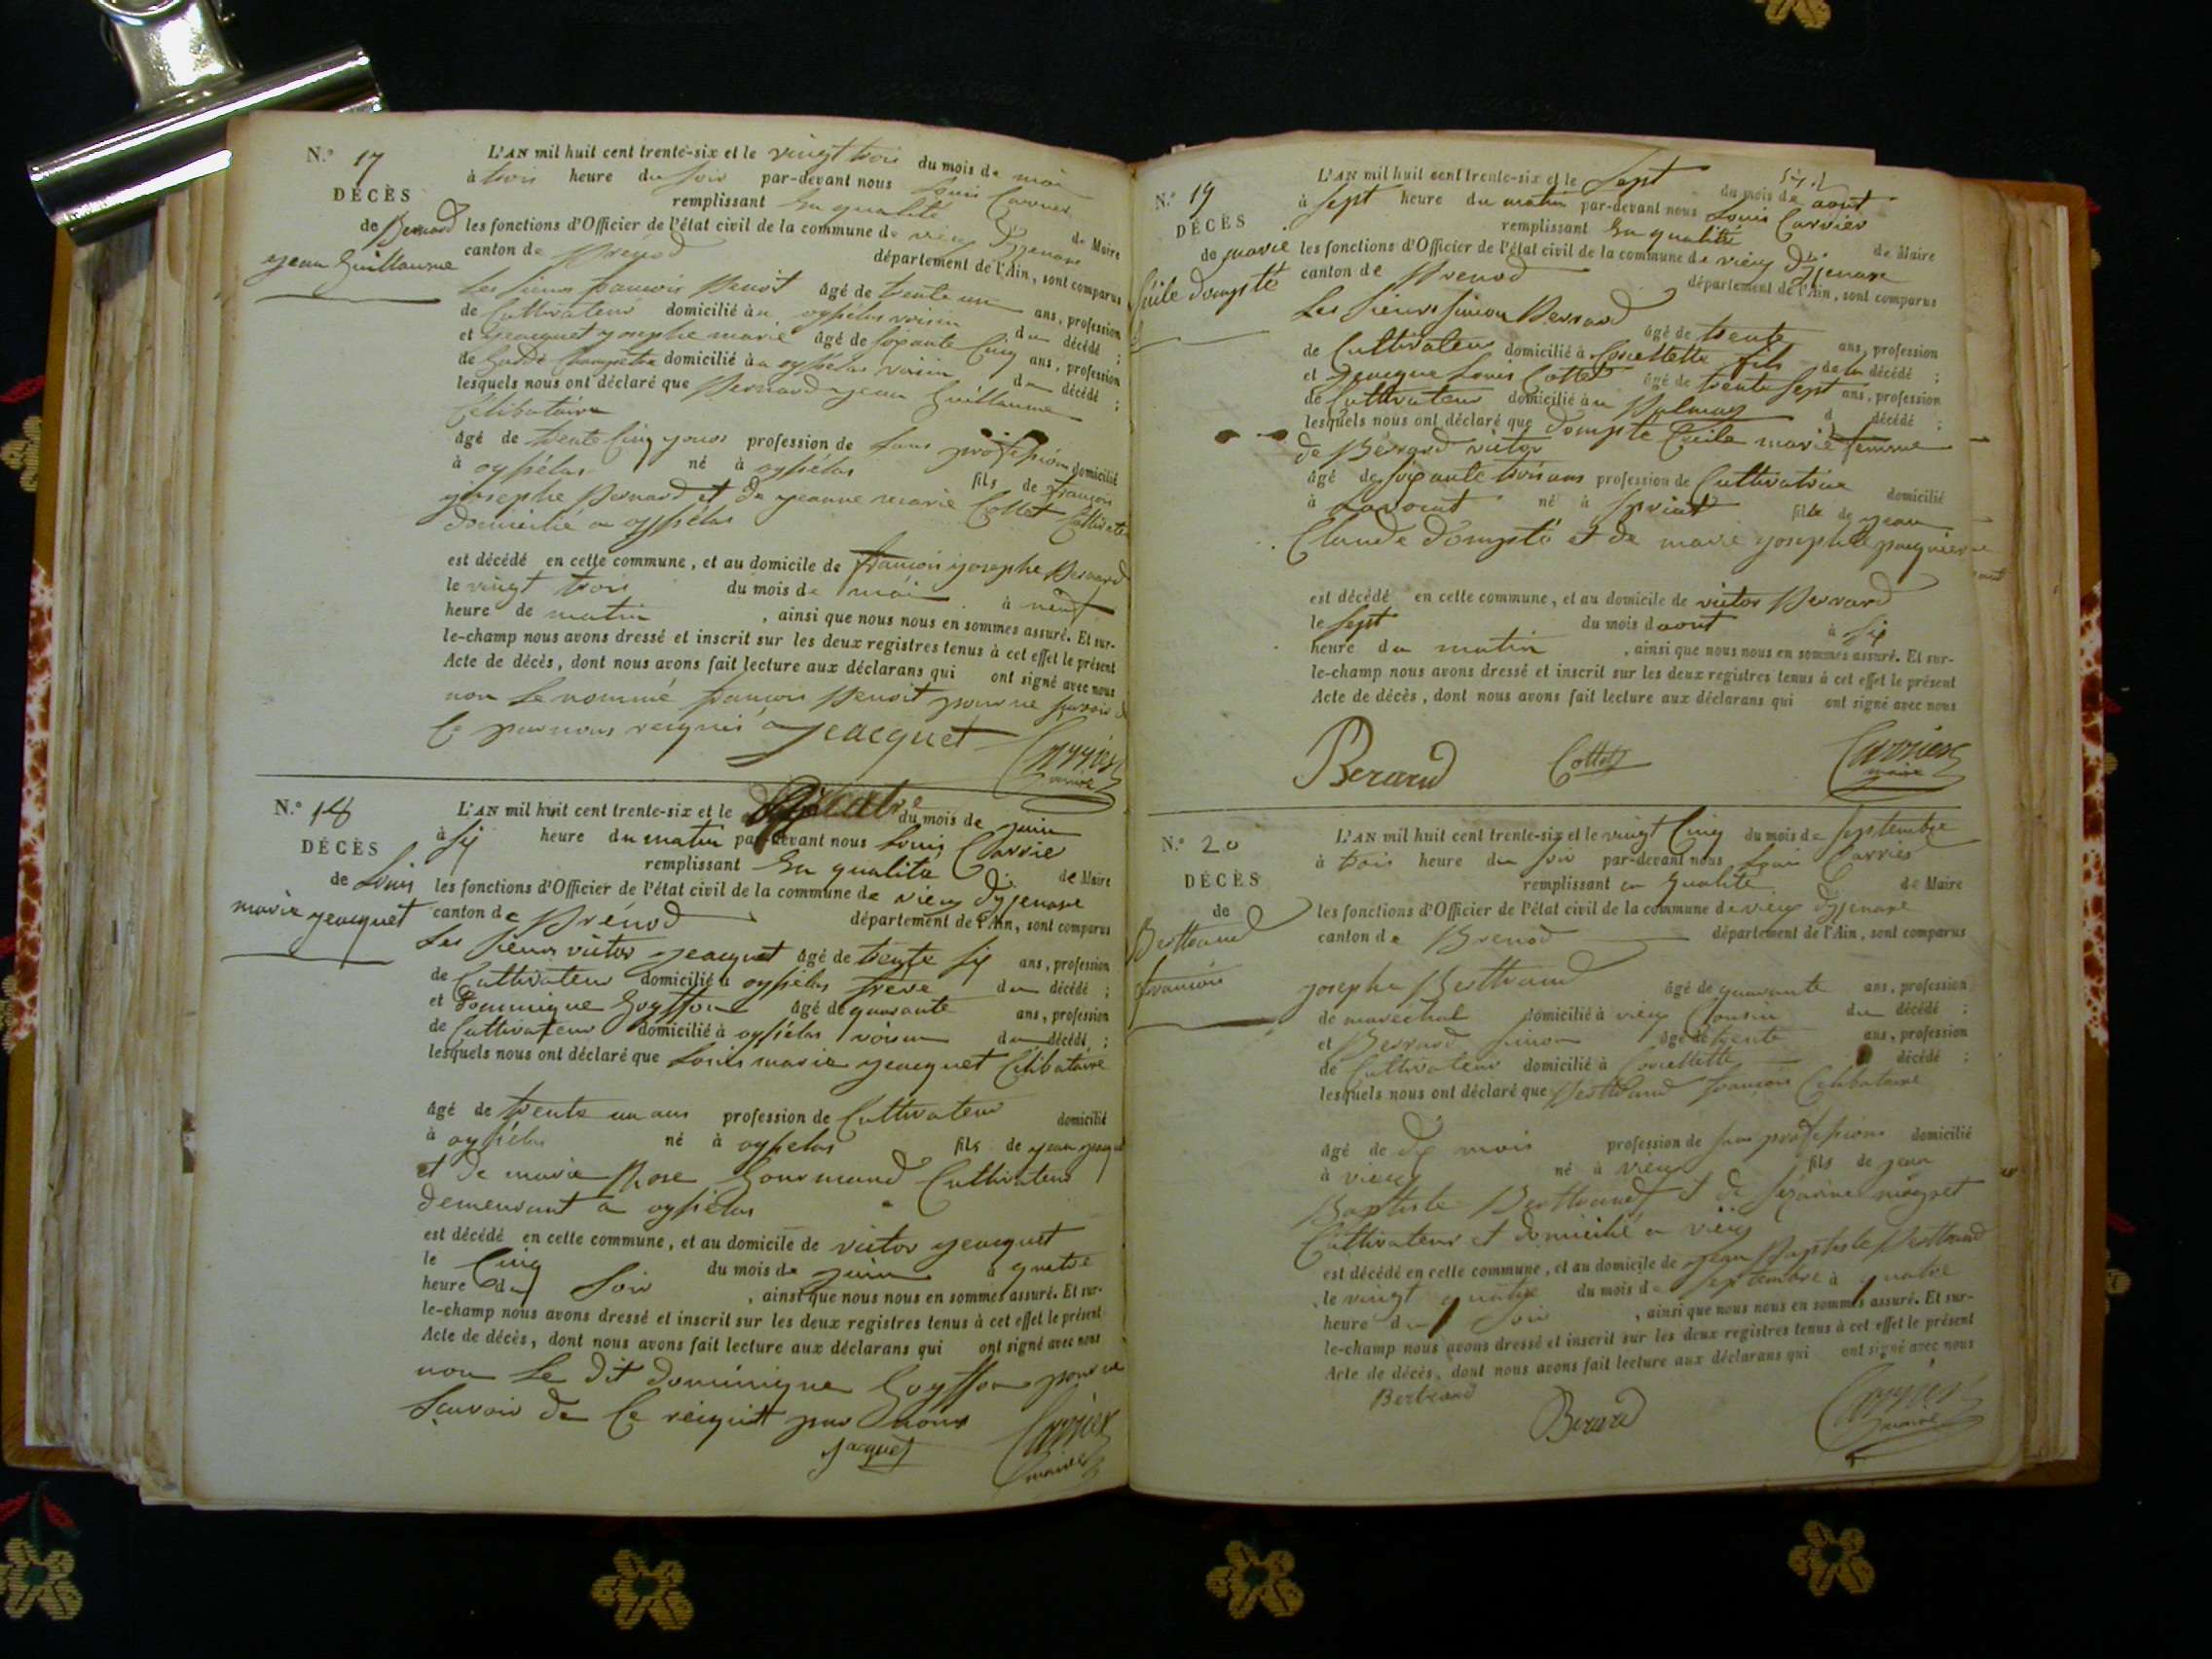 N.° 17
DÉCÈS
de Bernard
yean Guillaume
L'AN mil huit cent trente-six et le vingt trois du mois de mai
à trois heure du soir par-devant nous Louis Carrier
remplissant En qualité de Maire
les fonctions d'Officier de l'état civil de la commune de vieu D'yzenave
canton de Brénod département de l'Ain, sont comparus
Les sieurs francois Benoit âgé de trente un ans, profession
de Cultivateur domicilié à oyssélas voisin du décédé ;
et yeacquet yosephe marie âgé de soixante Cinq ans, profession
de Garde Champetre domicilié à oyssélas voisin du décédé ;
lesquels nous ont déclaré que Bernard yean Guillaume
Célibataire
âgé de trente Cinq yours profession de sans profession domicilié
à oyssélas né à oyssélas fils de francois
yosephe Bernard et de yeanne marie Collet Cultivate
domicilié a oyssélas
est décédé en cette commune, et au domicile de francois yosephe Bernard
le vingt trois du mois de mai à neuf
heure de matin , ainsi que nous nous en sommes assuré. Et sur-
le-champ nous avons dressé et inscrit sur les deux registres tenus à cet effet le présent
Acte de décès, dont nous avons fait lecture aux déclarans qui ont signé avec nous
non Le nommé francois Benoit pour ne savoir d
Ce par nous requis yeacquet Carrier
maire
N.° 18
DÉCÈS
de Louis
marie yeacquet
L'AN mil huit cent trente-six et le du mois de juin
à six heure du matin par-devant nous Louis Carrier
remplissant En qualité de Maire
les fonctions d'Officier de l'état civil de la commune de vieu D'yzenave
canton de Brénod département de l'Ain, sont comparus
Les sieurs victor yeacquet âgé de trente six ans, profession
de Cultivateur domicilié à oyssélas frere du décédé ;
et Dominique Goyffon âgé de quarante ans, profession
de Cultivateur domicilié à oyssélas voisin du décédé ;
lesquels nous ont déclaré que Louis marie yeacquet Célibataire
âgé de trente un ans profession de Cultivateur domicilié
à oyssélas né à oyssélas fils de yean yeacquet
et de marie Rose Gourmand Cultivateur
demeurant a oyssélas
est décédé en cette commune, et au domicile de victor yeacquet
le Cinq du mois de juin à quatre
heure du Soir , ainsi que nous nous en sommes assuré. Et sur-
le-champ nous avons dressé et inscrit sur les deux registres tenus à cet effet le présent
Acte de décès, dont nous avons fait lecture aux déclarans qui ont signé avec nous
non Le dit dominique Goyffon pour ne
Savoir de Ce requit par nous
Jacquet Carrier
maire
N.° 19
DÉCÈS
de marie
Cécile dompté
L'AN mil huit cent trente-six et le Sept du mois de aout
à sept heure du matin par-devant nous Louis Carrier
remplissant En qualité de Maire
les fonctions d'Officier de l'état civil de la commune de vieu D'yzenave
canton de Brenod département de l'Ain, sont comparus
Les sieurs simon Berrard âgé de trente ans, profession
de Cultivateur domicilié à Corcellette fils de la décédé ;
et yeacque Louis Cottet âgé de trente sept ans, profession
de Cultivateur domicilié à d décédé ;
lesquels nous ont déclaré que dompté Cécile marie femme
de Berrard victor
âgé de soixante trois ans profession de Cultivatrice domicilié
à né à fille de yean
Claude dompté et de marie yosephte
est décédé en cette commune, et au domicile de victor Berrard
le sept du mois d aout à six
heure du matin , ainsi que nous nous en sommes assuré. Et sur-
le-champ nous avons dressé et inscrit sur les deux registres tenus à cet effet le présent
Acte de décès, dont nous avons fait lecture aux déclarans qui ont signé avec nous
Berard Cottet Carrier
maire
N.° 20
DÉCÈS
de
Berttrand
francois
L'AN mil huit cent trente-six et le vingt Cinq du mois de septembre
à trois heure du soir par-devant nous Louis Carrier
remplissant en qualité de Maire
les fonctions d'Officier de l'état civil de la commune de vieu d'yzenave
canton de Brenod département de l'Ain, sont comparus
yosephe Berttrand âgé de quarante ans, profession
de marechal domicilié à vieu Cousin du décédé ;
et Berrard simon âgé de trente ans, profession
de Cultivateur domicilié à Corcellette décédé ;
lesquels nous ont déclaré que Berttrand francois Célibataire
âgé de dix mois profession de sans profession domicilié
à vieu né à vieu fils de yean
Baptiste Berttrand et de
Cultivateur et domicilié a vieu
est décédé en cette commune, et au domicile de yean Baptiste Berttrand
le vingt quatre du mois de septembre à quatre
heure du soir , ainsi que nous nous en sommes assuré. Et sur-
le-champ nous avons dressé et inscrit sur les deux registres tenus à cet effet le présent
Acte de décès, dont nous avons fait lecture aux déclarans qui ont signé avec nous
Bertrand Berard Carrier
maire